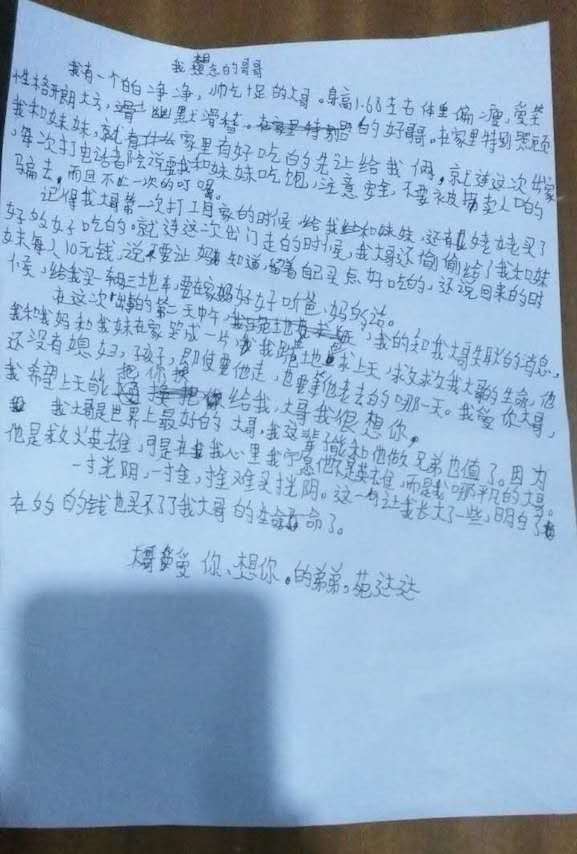 我想念的哥哥
我有一个白白净净，帅气十足的大哥。身高1.68左右体重偏瘦，爱笑
性格开朗大方，滑稽幽默滑稽。的好哥哥。在家里特别照顾
我和妹妹，就有什么家里有好吃的先让给我俩，就连这次出家
，每次打电话着陪说要我和妹妹吃饱，注意安全，不要被拐卖人口的
骗去。而且不止一次的叮嘱。
记得我大哥第一次打工回家的时候，给我和妹妹，还有姥姥买了
好多好吃的。就连这次出门走的时候，我大哥还偷偷给了我和妹
妹每人10元钱，说不要让妈知道，留着自己买点好吃的，还说回来的时
候，给我买一车三地車，要在家好好听爸、妈的话。
在这次出事的第二天中午，我的知我大哥失联的消息。
我和我妈和我妹在家哭成一片，我跪地求上天，救救我大哥的生命，他
还没有媳妇，孩子，即使要他走，也要等他老去的哪一天。我爱你大哥，
我希望上天能把你换给我，大哥我很想你。
我大哥是世界上最好的大哥，我这辈子能和他做兄弟也值了。因为
他是救火英雄，可是在我心里我宁愿他不是英雄，而是我哪平凡的大哥。
一寸光阴，一寸金，寸金难买寸光阴。这一句让我长大了一些，明白了
在多的钱也买不了了我大哥的生命了。
大哥爱你、想你。的弟弟。苑达达